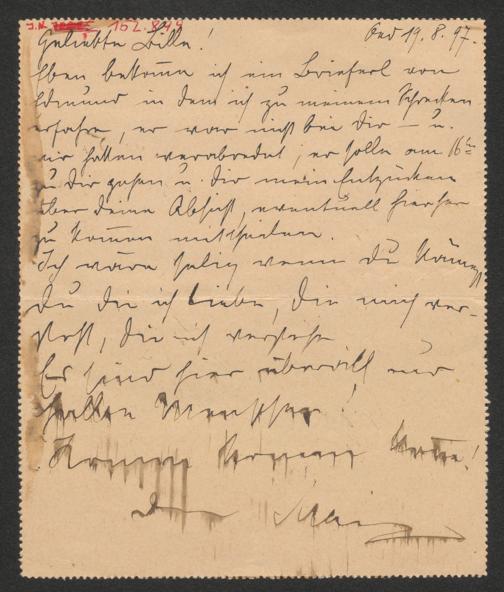 J.N. 162.849
Geliebte Lilli! Aus[see] 19.8.97.
Eben bekomme ich ein Brieferl von
Edmund in dem ich zu meinem Schrecken
erfahre, er war nicht bei Dir – u.
wir hatten verabredet, er solle am 16ten
zu Dir gehen u. Dir mein Entzücken
über deine Absicht, eventuell hierher
zu kommen mittheilen.
Ich wäre selig wenn Du kämest
Du die ich liebe, die mich ver-
steht, die ich verstehe
Es sind hier überall nur
Menschen!
Komm
Dein